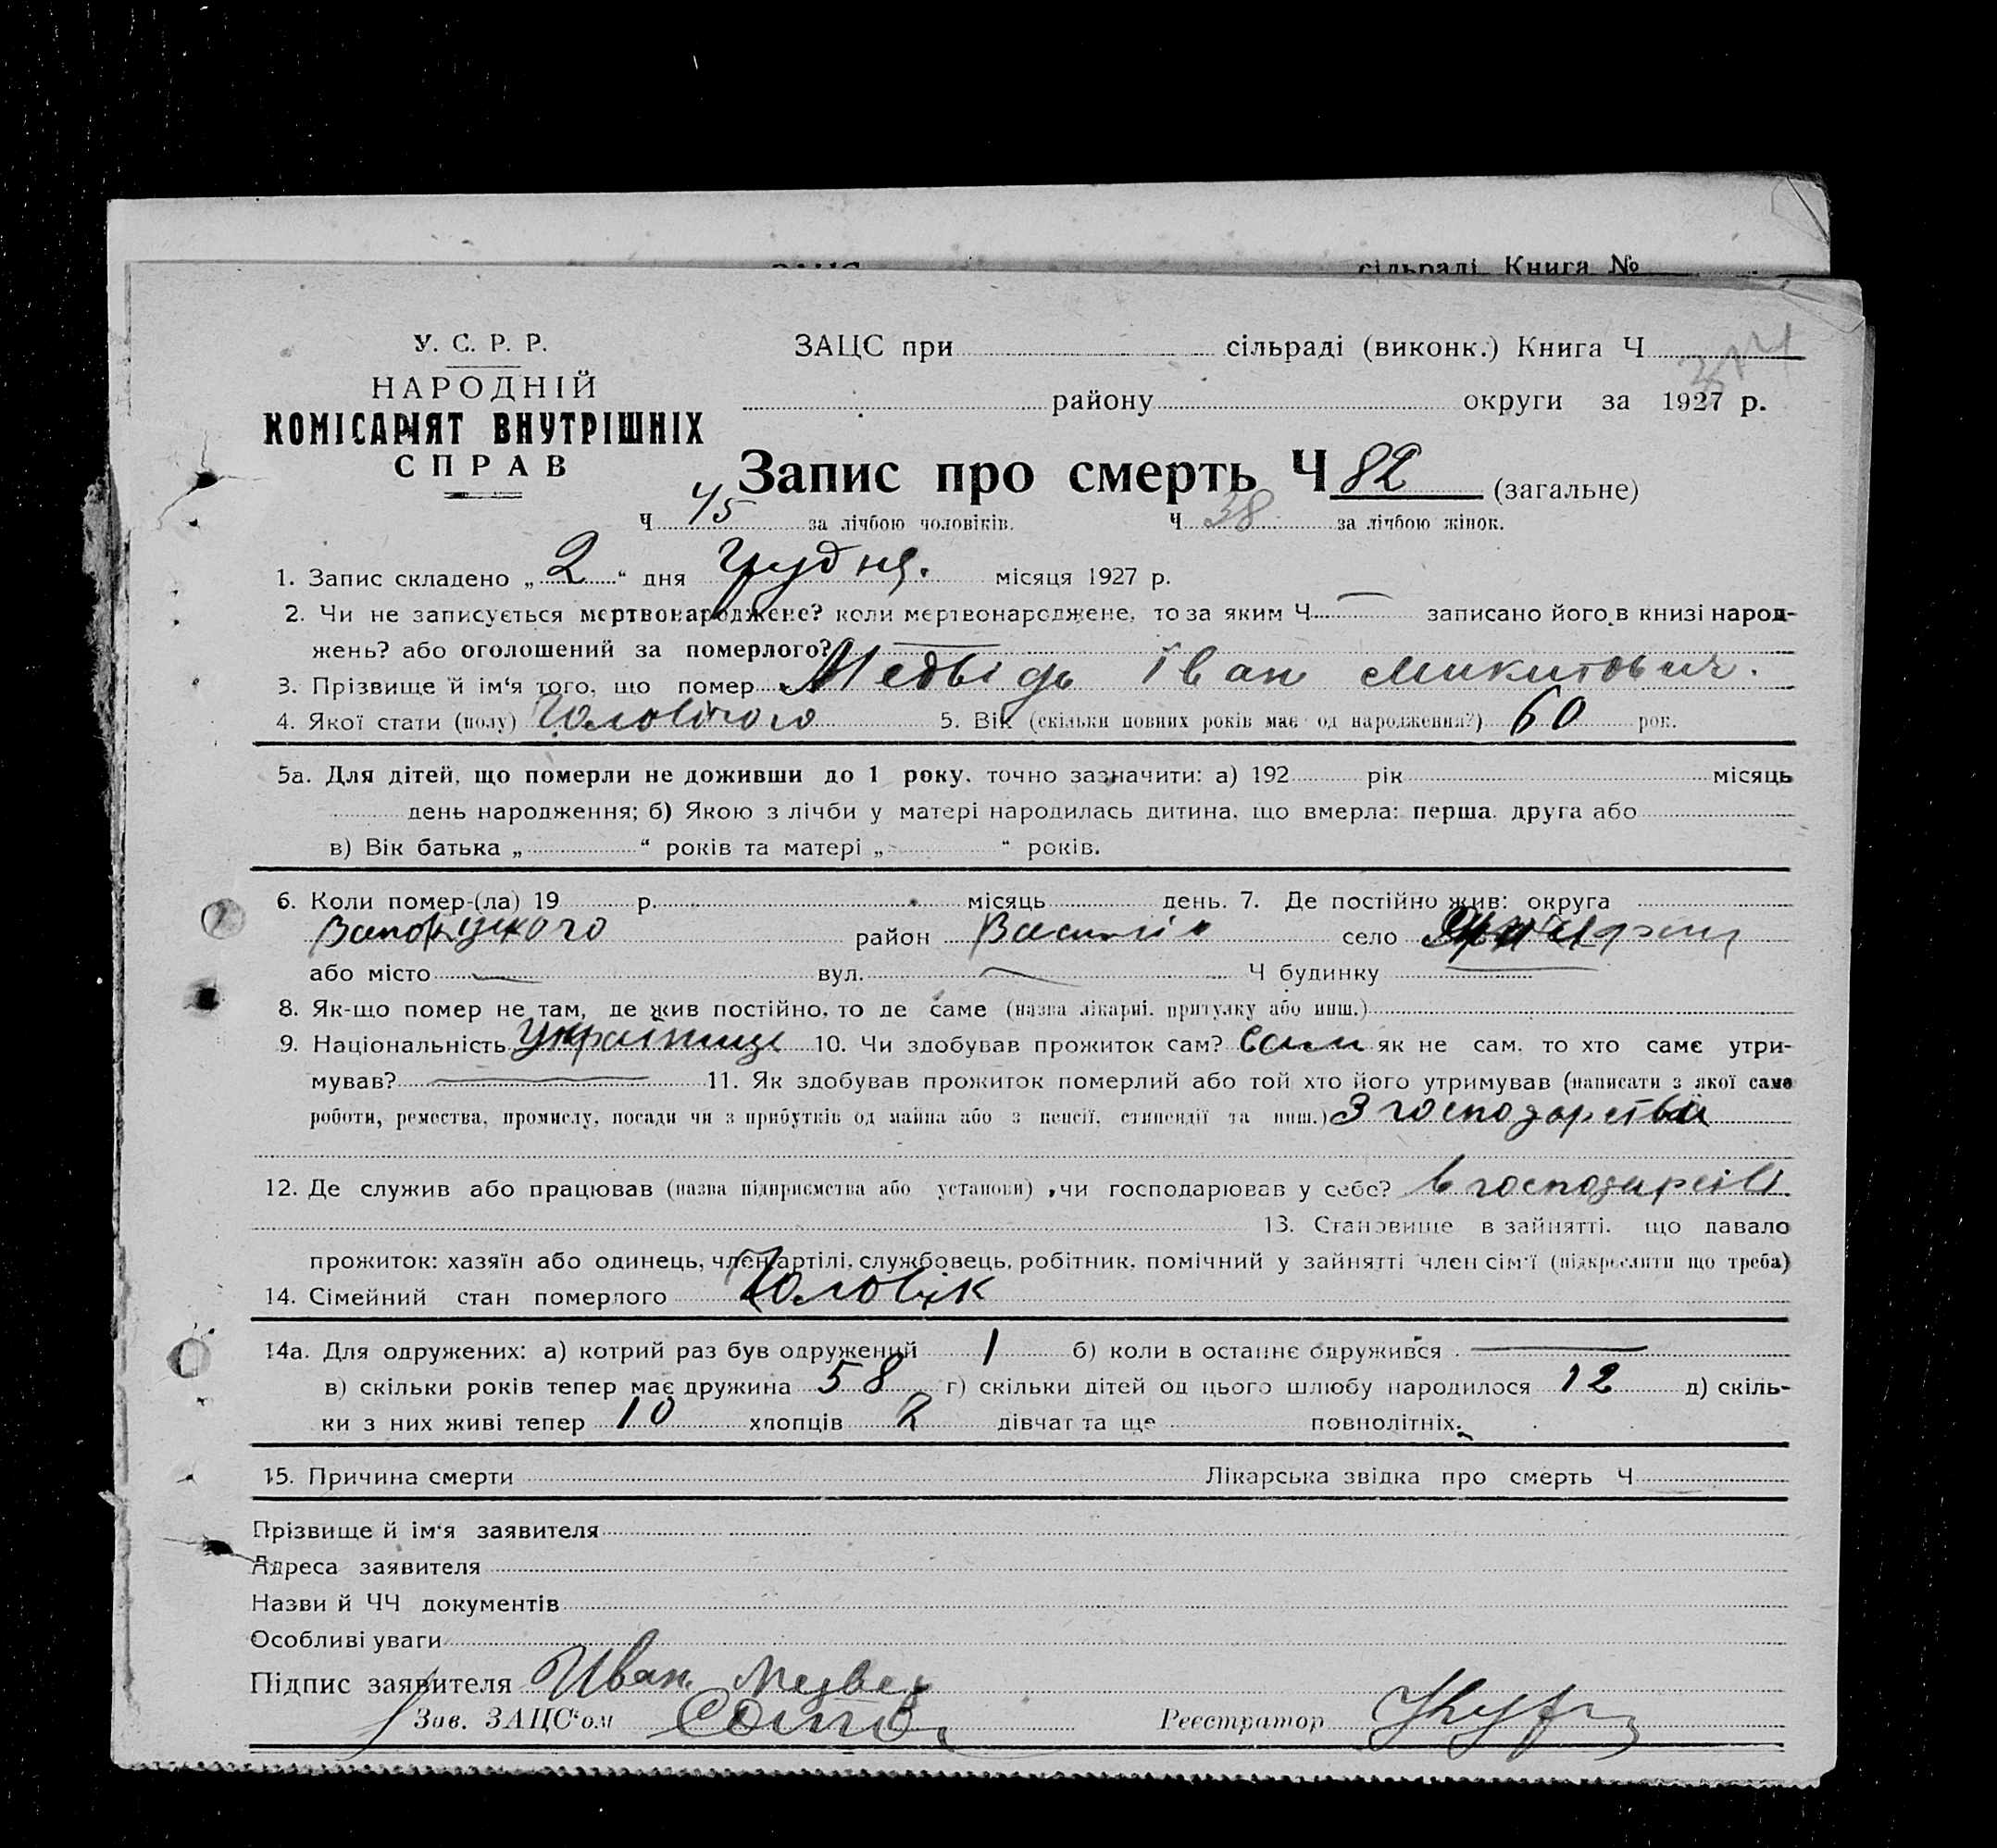 сільраді Книга №
У. С. Р. Р.
НАРОДНІЙ
КОМІСАРІЯТ ВНУТРІШНІХ
СПРАВ
ЗАЦС при сільраді (виконк.) Книга Ч
району округи за 1927 р.
Запис про смерть Ч 82 (загальне)
Ч 45 за лічбою чоловіків. Ч 38 за лічбою жінок.
1. Запис складено „ 2 “ дня Грудня. місяця 1927 р.
2. Чи не записується мертвонароджене? коли мертвонароджене, то за яким Ч — записано його в книзі народ-
жень? або оголошений за померлого? —
3. Прізвище й ім‘я того, що помер Медвідь Іван Микитович.
4. Якої стати (полу) Чоловічого 5. Вік (скільки повних років має од народження?) 60 рок.
5а. Для дітей, що померли не доживши до 1 року, точно зазначити: а) 192 рік місяць
день народження; б) Якою з лічби у матері народилась дитина, що вмерла: перша, друга або
в) Вік батька „ “ років та матері „ “ років.
6. Коли помер-(ла) 19 р. місяць день. 7. Де постійно жив: округа
район село
або місто — вул. — Ч будинку —
8. Як-що помер не там, де жив постійно, то де саме (назва лікарні, притулку або инш.)
9. Національність Українець 10. Чи здобував прожиток сам? Сам як не сам, то хто саме утри-
мував? — 11. Як здобував прожиток померлий або той хто його утримував (написати з якої саме
роботи, ремества, промислу, посади чи з прибутків од майна або з пенсії, стипендії та инш.) З господарства
12. Де служив або працював (назва підприємства або установи), чи господарював у себе? в господарстві
13. Становище в зайнятті, що давало
прожиток: хазяїн або одинець, член артілі, службовець, робітник, помічний у зайнятті член сім‘ї (підкреслити що треба)
14. Сімейний стан померлого Чоловік
14а. Для одружених: а) котрий раз був одружений 1 б) коли в останнє одружився —
в) скільки років тепер має дружина 58 г) скільки дітей од цього шлюбу народилося 12 д) скіль-
ки з них живі тепер 10 хлопців 2 дівчат та ще повнолітніх.
15. Причина смерти Лікарська звідка про смерть Ч
Прізвище й ім‘я заявителя
Адреса заявителя
Назви й ЧЧ документів
Особливі уваги
Підпис заявителя Иван
Зав. ЗАЦС‘ом Реєстратор